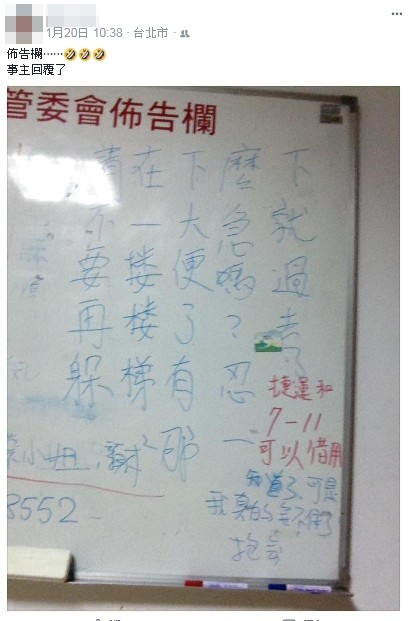 1月20日 10:38 · 台北市 ·
佈告欄……
事主回覆了
管委會佈告欄
請不要再躲
在一樓樓梯
下大便了有那
麼急嗎?忍一
下就過去了
捷運和
7-11
可以借用
知道了,可是
我真的忍不住了
抱歉
小姐
3552